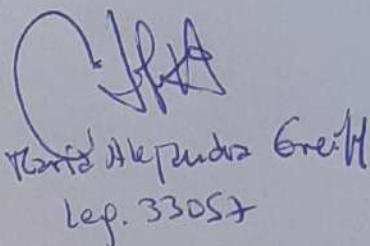 María Alejandra Greiff
Leg. 33057